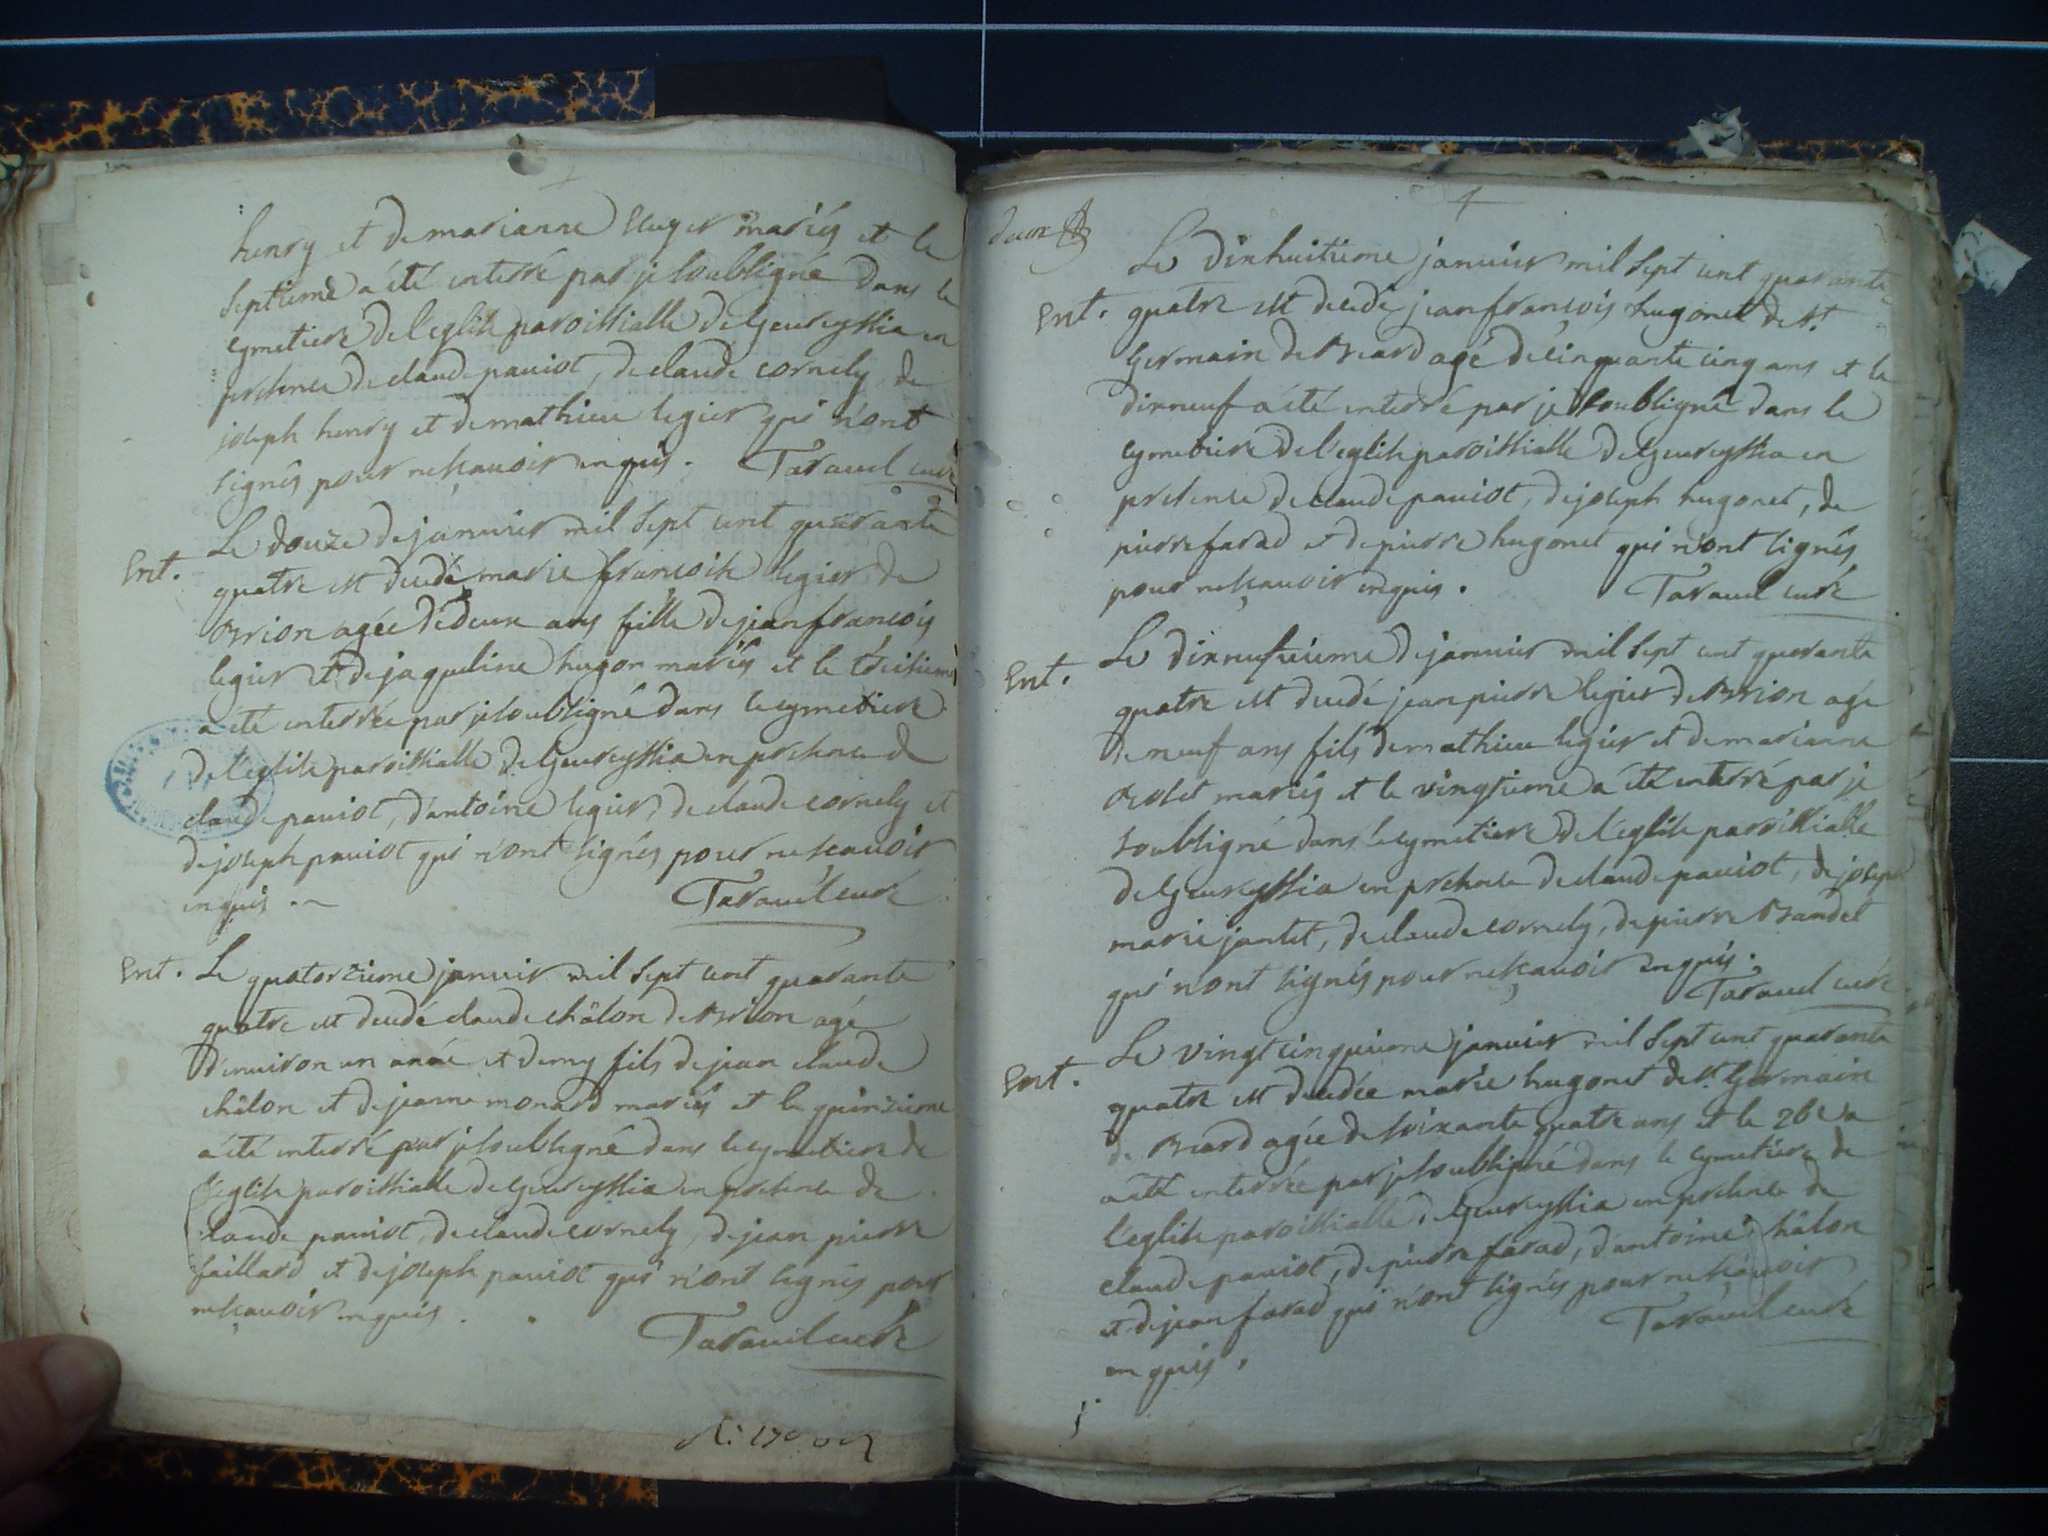 henry et de marianne mariés et le
septieme a été enterré par je soubsigné dans le
cymetiere de l'eglise paroissialle de Geureyssia en
presence de claude paviot, de claude cornely de
joseph henry et de mathieu legier qui n'ont
signés pour ne sçauoir enquis. Taravel curé
Ent. Le douze de januier mil sept cent quarante
quatre est decedé marie francoise legier de
Brion agée de deux ans fille de jean francois
legier et de jaqueline hugon mariés et le treisieme
a été enterrée par je soubsigné dans le cymetiere
de l'eglise paroissialle de Geureyssia en presence de
claude paviot, d'antoine legier, de claude cornely et
de joseph paviot qui n'ont signés pour ne scauoir
enquis. Taravel curé
Ent. Le quatorzieme januier mil sept cent quarante
quatre est decedé claude châlon de Brion agé
d'enuiron un anée et demy fils de jean claude
châlon et de jeanne monard mariés et le quinzieme
a été enterré par je soubsigné dans le cymetiere de
l'eglise paroissialle de Geureyssia en presence de
claude paviot, de claude cornely, de jean pierre
faillard et de joseph paviot qui n'ont signés pour
ne sçauoir enquis. Taravel curé
deux
Le dixhuitieme januier mil sept cent quarante
Ent. quatre est decedé jean francois hugonet de st.
Germain de Beard agé de cinquante cinq ans et le
dixneuf a été enterré par je soubsigné dans le
cymetiere de l'eglise paroissialle de Geureyssia en
presence de claude paviot, de joseph hugonet, de
pierre farad et de pierre hugonet qui n'ont signés
pour ne sçauoir enquis. Taravel curé
Ent. Le dixneufuieme de januier mil sept cent quarante
quatre est decedé jean pierre legier de Brion agé
de neuf ans fils de mathieu legier et de marianne
Bolet mariés et le vingtieme a été enterré par je
soubsigné dans le cymetiere de l'eglise paroissialle
de Geureyssia en presence de claude paviot, de joseph
marie jantet, de claude cornely, de pierre Bandet
qui n'ont signés pour ne sçauoir enquis.
Taravel curé
Ent. Le vingt cinquieme januier mil sept cent quarante
quatre est decedée marie hugonet de st. Germain
de Beard agée de soixante quatre ans et le 26e a
a été enterrée par je soubsigné dans le cymetiere de
l'eglise paroissialle de Geureyssia en presence de
claude paviot, de pierre farad, d'antoine châlon
et de jean farad qui n'ont signés pour ne sçauoir
enquis. Taravel curé